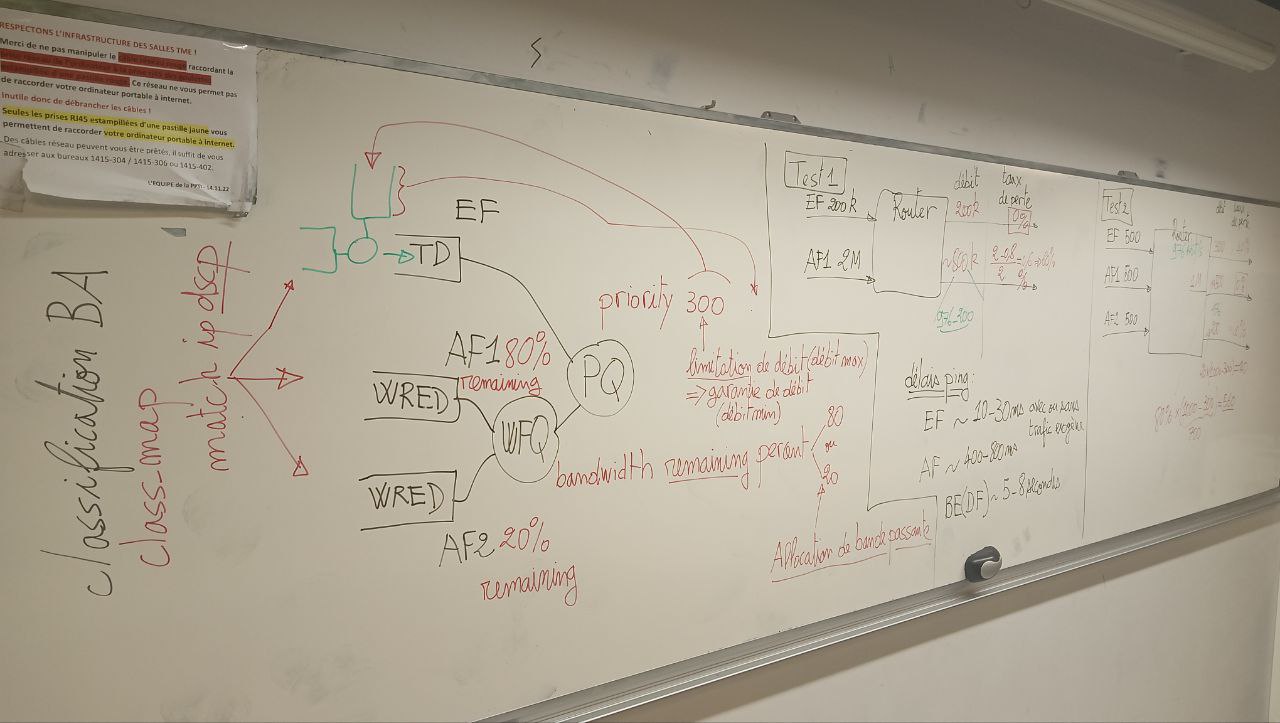 RESPECTONS L'INFRASTRUCTURE DES SALLES TME !
Merci de ne pas manipuler le câble réseau rouge raccordant la
Ce réseau ne vous permet pas
de raccorder votre ordinateur portable à internet.
Inutile donc de débrancher les câbles !
Seules les prises RJ45 estampillées d'une pastille jaune vous
permettent de raccorder votre ordinateur portable à internet.
Des câbles réseau peuvent vous être prêtés, il suffit de vous
adresser aux bureaux 1415-304 / 1415-306 ou 1415-402.
L'EQUIPE de la PPTI - 14.11.22
S
classification BA
class_map
match ip dscp
EF
TD
AF1 80%
remaining
WRED
WFQ
PQ
WRED
AF2 20%
remaining
priority 300
limitation de débit (débit max)
=> garantie de débit
(débit min)
bandwidth remaining percent
80
ou
20
Allocation de bande passante
Test 1
EF 200k
AF1 2M
Router
débit
200k
~800k
976-200
taux
de perte
0%
délais ping :
EF ~ 10-30ms avec ou sans
trafic exogène
AF ~ 400-800ms
BE(DF) ~ 5-8 secondes
Test 2
EF 500
AF1 500
AF2 500
Router
976 kbit/s
1M
débit
taux
de perte
80% x (1000-300) = 560
700